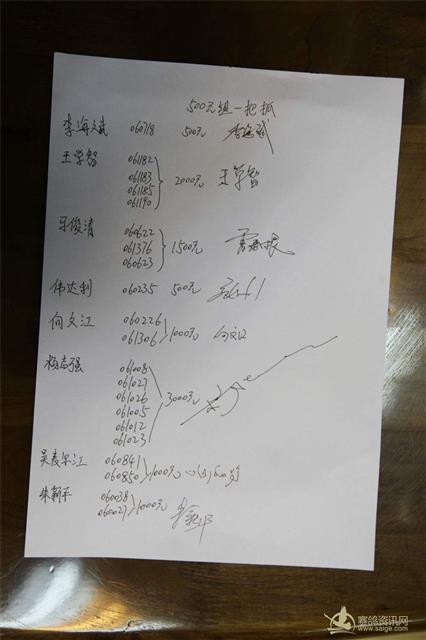 500元组一把抓
李海斌 060718 500元 李海斌
王学智 061182
061183
061185 2000元 王学智
061190
060622
061376 1500元
060623
伟达利 060235 500元
向文江 060226
061306 1000元 向文江
杨志强 061008
061027
061026 3000元
061005
061012
061023
吴麦尔江 060841
060850 1000元
朱新平 060038
060027 1000元
赛鸽资讯网
www.saige.com